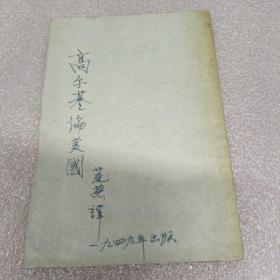 高尔基論美國
荒蕪譯
一九四九年出版